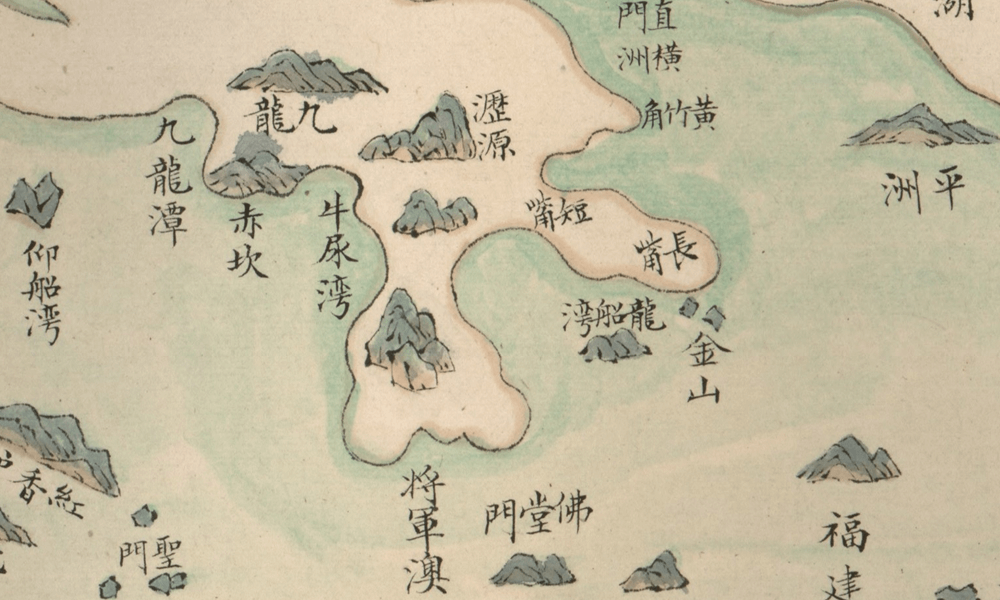 湖
直門
橫洲
黃竹角
平洲
瀝源
九龍
九龍潭
赤坎
牛尿湾
短嘴
長嘴
龍船湾
金山
仰船湾
將軍澳
佛堂門
福建
紅香
聖門